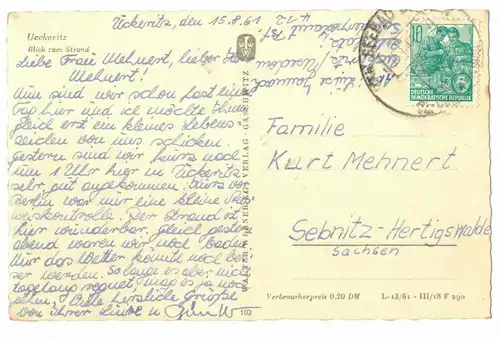 Ückeritz, den 15.8.61
Ueckeritz
Blick zum Strand
Liebe Frau Mehnert, lieber Herr
Mehnert!
Nun sind wir schon fast einen
Tag hier und ich möchte Ihnen
gleich erst ein kleines Lebens-
zeichen von uns schicken.
Gestern sind wir kurz nach
um 1 Uhr hier in Ückeritz
sehr gut angekommen. Kurz vor
Berlin war nur eine kleine Aus-
weiskontrolle. Der Strand ist
hier wunderbar. Gleich gestern
abend waren wir noch baden.
Nur das Wetter könnte noch bes-
ser werden. So lange es aber nicht
tagelang regnet, mag es ja noch
gehn. Viele herzliche Grüße
von Ihrer
WALTER WERNER BILD VERLAG · GASCHWITZ
102
DEUTSCHE
DEMOKRATISCHE REPUBLIK
10
Familie
Kurt Mehnert
Sebnitz-Hertigswalde
Sachsen
Verbraucherpreis 0,20 DM
L-13/61 - III/18 F 290